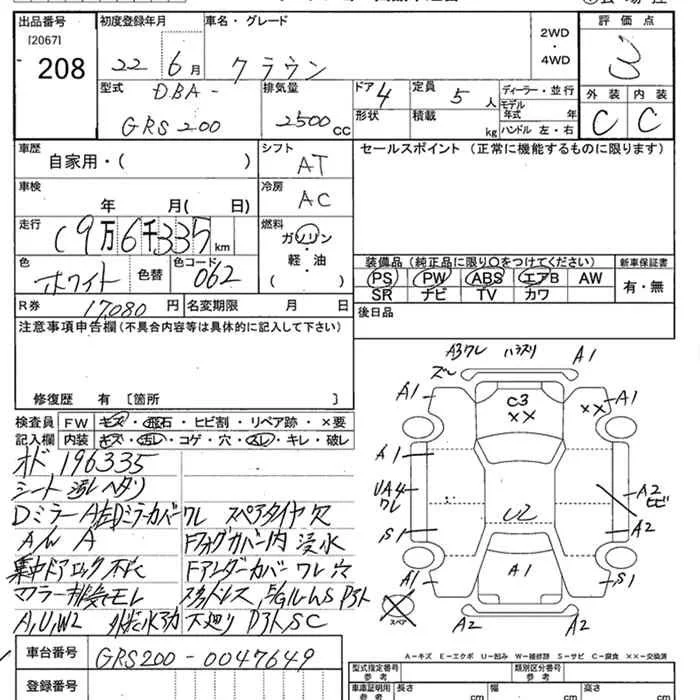 出品番号 初度登録年月 車名・グレード 2WD・4WD 評価点
[2067]
208 22年6月 クラウン 3
型式 DBA-GRS200 排気量 2500CC ドア 4 形状 定員 5人 積載 kg
ディーラー・並行
モデル年式 年
ハンドル 左・右
外装 内装
C C
車歴 自家用・( ) シフト AT
セールスポイント(正常に機能するものに限ります)
車検 年 月( 日) 冷房 AC
走行 19万6千335km 燃料 ガソリン・軽・油( )
色 ホワイト 色替 色コード 062
装備品(純正品に限り○をつけてください) 新車保証書
PS PW ABS エアB AW 有・無
SR ナビ TV カワ
R券 17,080円 名変期限 月 日
後日品
注意事項申告欄(不具合内容等は具体的に記入して下さい)
修復歴 有 [箇所
検査員 FW キズ・飛石・ヒビ割・リペア跡・×要
記入欄 内装 キズ・汚レ・コゲ・穴・スレ・キレ・破レ
オド 196335
シート 汚レ ヘタリ
Dミラー A 左Dミラーカバーワレ スペアタイヤ欠
A/W A Fフォグカバー内 浸水
集中ドアロック 不良 Fアンダーカバー ワレ 穴
マフラー排気モレ
A,U,W2 下廻り
A3 ワレ ハラスリ A1
ズレ
A1 C3 ×× ×× A1
A1
UA4 ワレ U2 A2 ヒビ
S1 A2
A1 A1 S1
スペア A2 A2
A-キズ E-エクボ U-凹み W-補修跡 S-サビ C-腐食 ××-交換済
車台番号 GRS200-0047649
登録番号
型式指定番号 参考 類別区分番号 参考
車庫証明用 参考 長さ cm 幅 cm 高さ cm